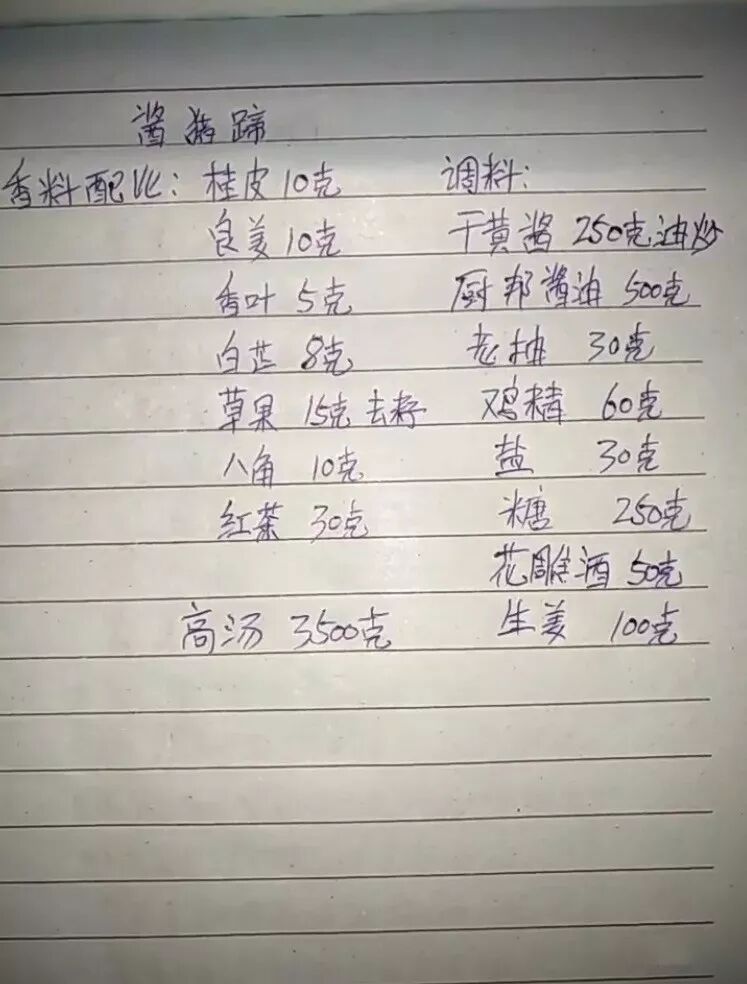 酱猪蹄
香料配比：桂皮10克 调料：
良姜10克 干黄酱 250克油炒
香叶 5克 厨邦酱油 500克
白芷 8克 老抽 30克
草果 15克去籽 鸡精 60克
八角 10克 盐 30克
红茶 30克 糖 250克
花雕酒 50克
高汤 3500克 生姜 100克